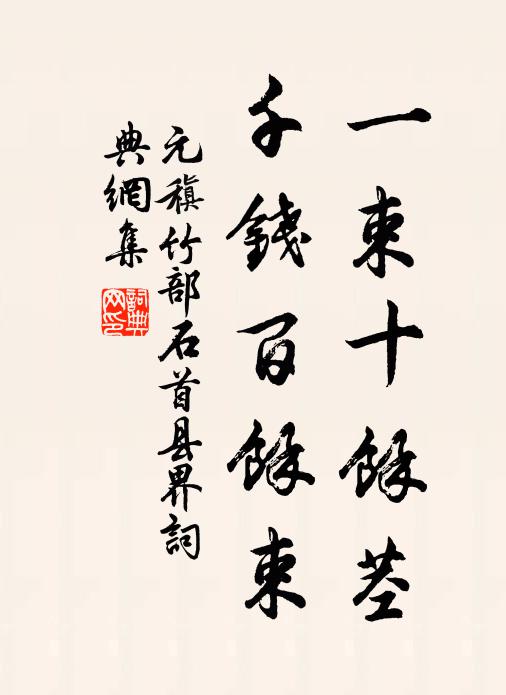 一束十餘莖
千錢百餘束
元稹竹部石首县界詞
典網集
詞典
网印